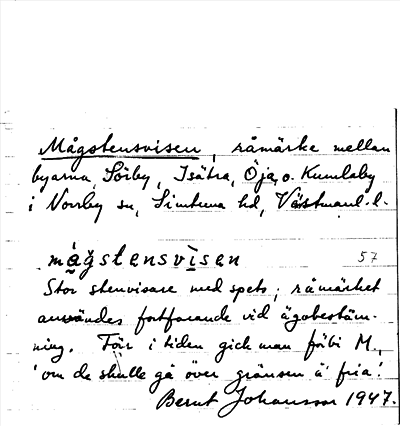 Mågstensvisen, råmärke mellan
byarna Sörby, Isätra, Öja o. Kumlaby
i Norrby sn, Simtuna hd, Västmanl. l.
mågstensvisen 57
Stor stenvisare med spets; råmärket
användes fortfarande vid ägobestäm-
ning. Förr i tiden gick man förbi M.,
'om de skulle gå över gränsen å fria'.
Bernt Johansson 1947.